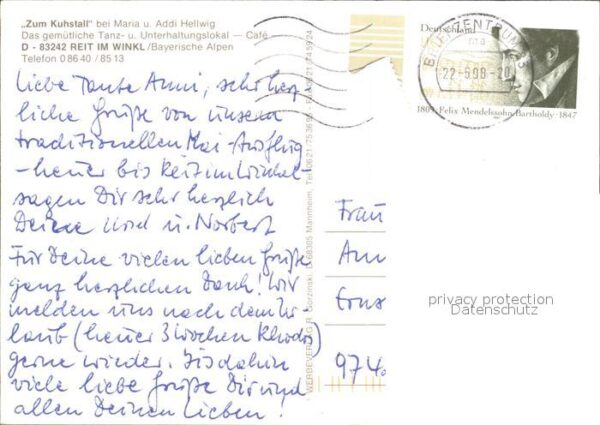 „Zum Kuhstall" bei Maria u. Addi Hellwig
Das gemütliche Tanz- u. Unterhaltungslokal — Café
D - 83242 REIT IM WINKL/Bayerische Alpen
Telefon 0 86 40 / 85 13
Liebe Tante Anni, sehr herz
liche Grüße von unserem
traditionellen Mai-Ausflug
- heuer bis Reit im Winkel -
sagen Dir sehr herzlich
Deine und u. Norbert
Für Deine vielen lieben Grüße
ganz herzlichen Dank! Wir
melden uns nach dem Ur-
laub (heuer 3 Wochen Rhodos)
gerne wieder. Bis dahin
viele liebe Grüße Dir und
allen Deinen Lieben!
Deutschland
BRIEFZENTRUM 83
22-5.98-20
1809 · Felix Mendelssohn Bartholdy · 1847
D-68305 Mannheim, Tel.
Frau
Ann
Erns
974
privacy protection
Datenschutz